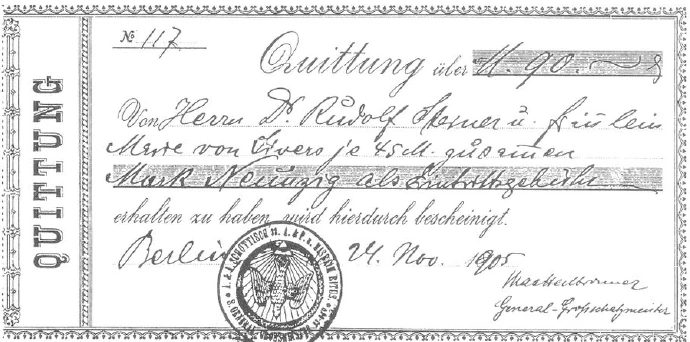 QUITTUNG
No 117
Quittung über M. 90. — ₰
Von Herrn Dr. Rudolf Steiner u. Fräulein
Marie von Sivers je 45 M. zusammen
Mark Neunzig als Eintrittsgebühr
erhalten zu haben, wird hierdurch bescheinigt.
Berlin 24. Nov. 1905
General-Großschatzmeister